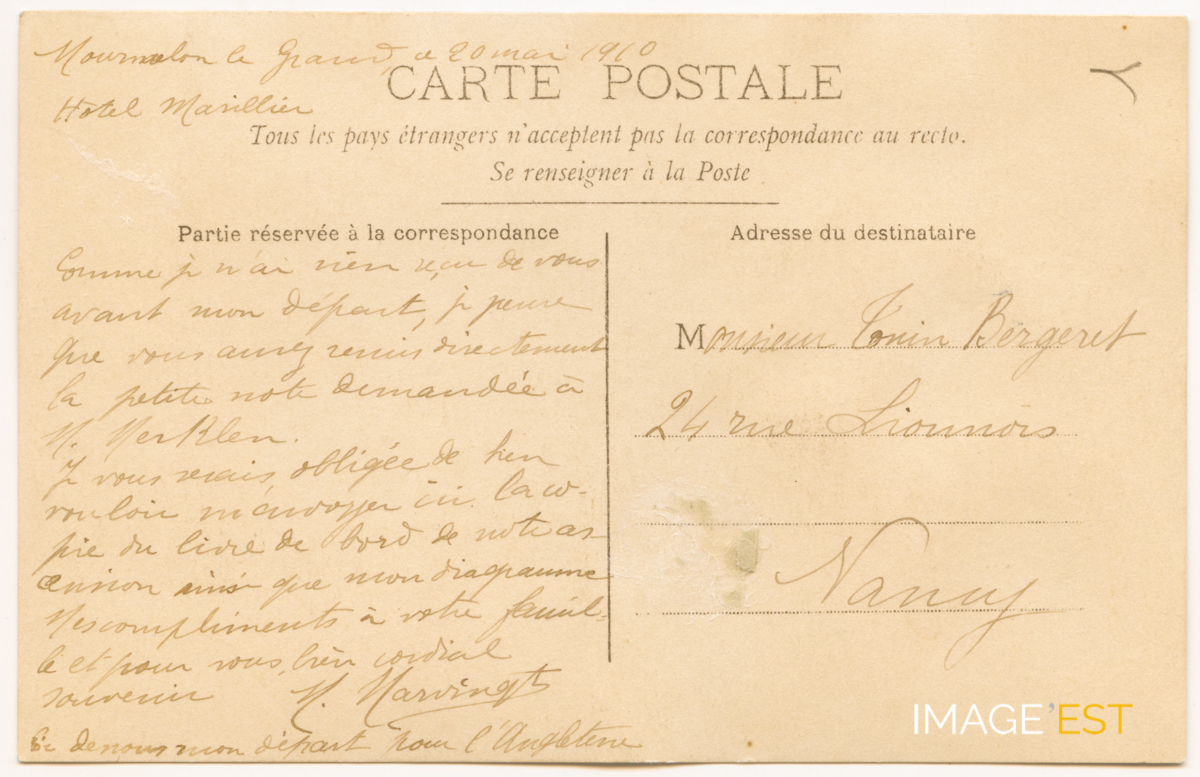 Mourmelon le Grand, le 20 mai 1910
Hôtel Marillier
CARTE POSTALE
Tous les pays étrangers n'acceptent pas la correspondance au recto.
Se renseigner à la Poste
Partie réservée à la correspondance
Comme je n'ai rien reçu de vous
avant mon départ, je pense
que vous aurez remis directement
la petite note demandée à
M. Merklen.
Je vous serais obligée de bien
vouloir m'envoyer ici la co-
pie du livre de bord de notre as-
cension ainsi que mon diagramme
Mes compliments à votre famil-
le et pour vous, bien cordial
souvenir M. Marvingt
mon départ pour l'Angleterre
Adresse du destinataire
Monsieur Tonin Bergeret
24 rue Lionnois
Nancy
IMAGE'EST